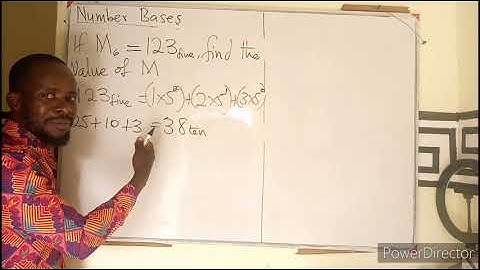 Number Bases
If M₆ = 123five, find the
Value of M
123five = (1×5²)+(2×5¹)+(3×5⁰)
25+10+3 = 38ten
PowerDirector